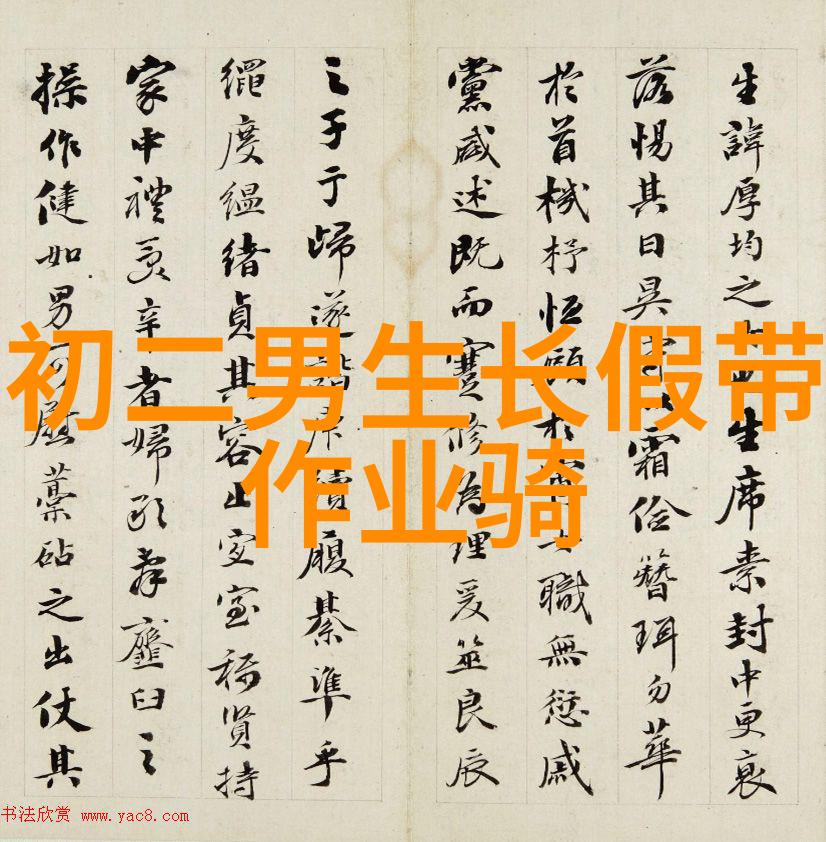 生諱厚均之
生席素封中更衰
落惕其日吳
霜儉簪珥勿華
於首機杼恒願於
職無愆戚
黨咸述既而蹇修為理爰筮良辰
之子于歸遂
履綦準乎
繩度緼緒貞其容止
室稱賢持
家中禮
辛者婦
臼之
操作健如男
藁砧之出仗其
初二男生长假带
作业骑
书法欣赏 www.yac8.com